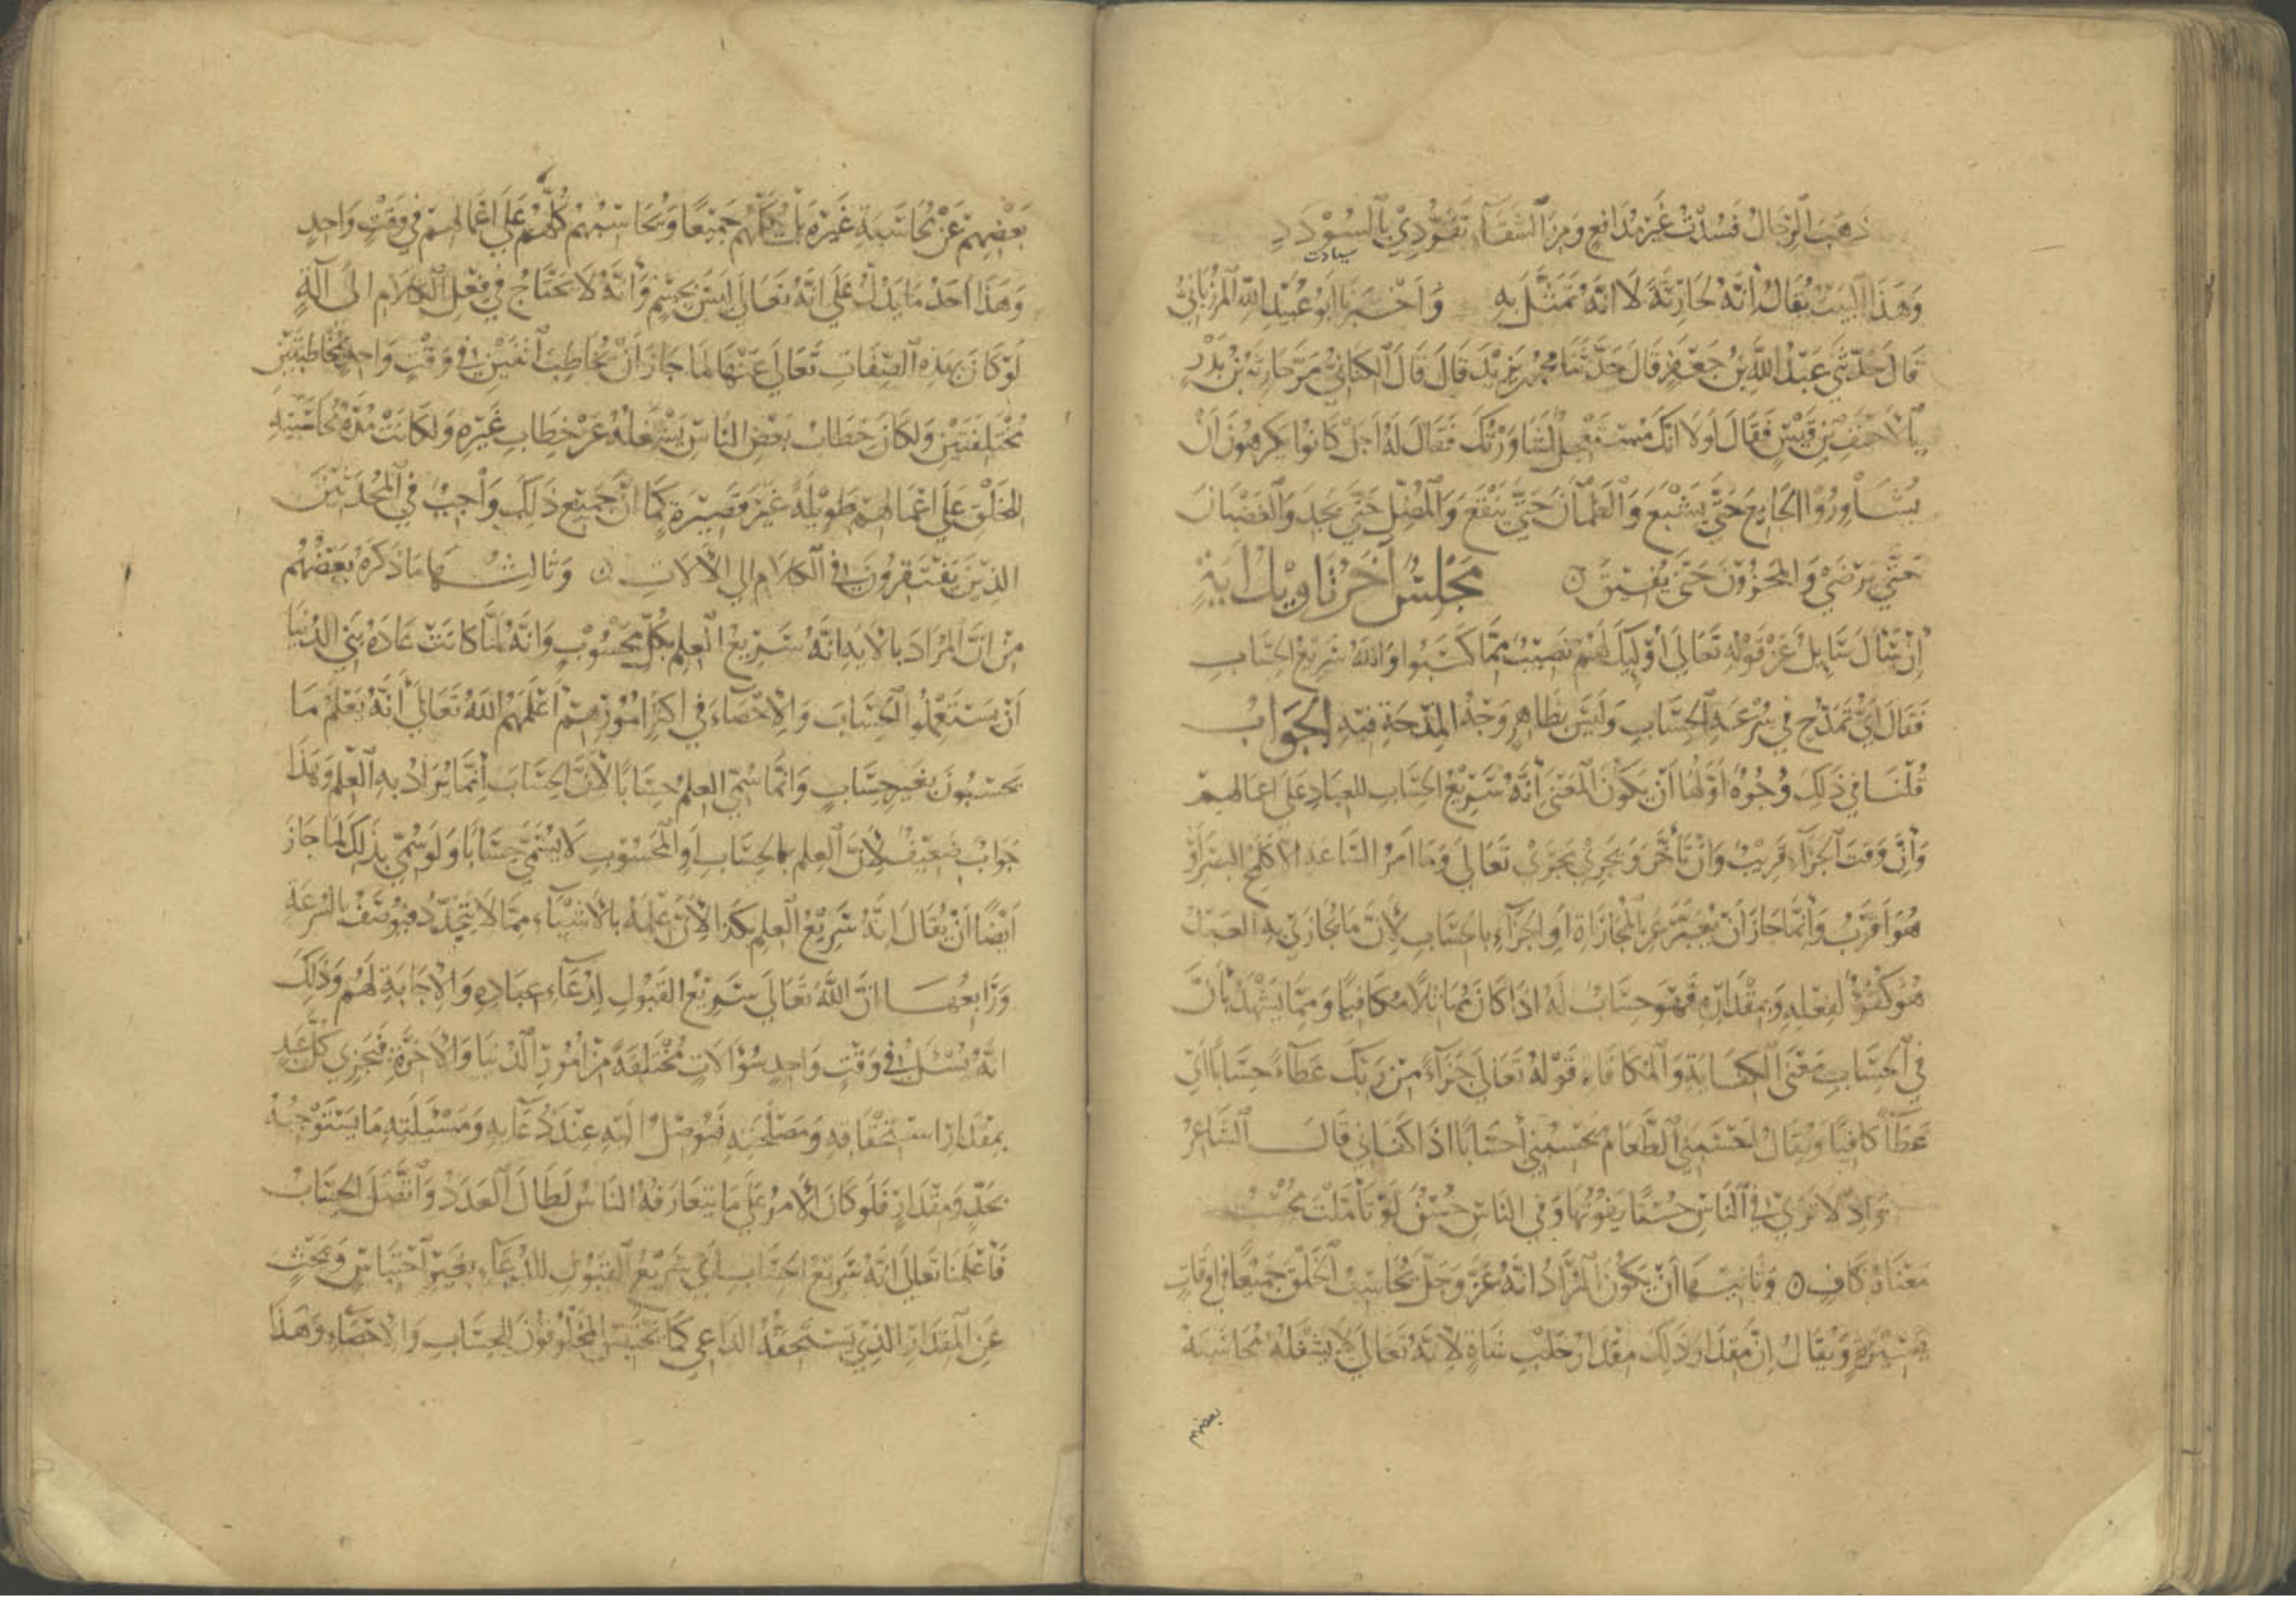 ذَهَبَ الرِّجَالُ فَسُدْتُ غَيْرَ مُدَافَعٍ وَمِنَ الشَّقَاءِ تَفَرُّدِي بِالسُّوْدَدِ
سیادت
وَهَذَا الْبَيْتُ يُقَالُ أَنَّهُ لِحَارِثَةَ لَا أَنَّهُ تَمَثَّلَ بِهِ وَأَخْبَرَنَا أَبُو عُبَيْدِ اللهِ الْمَرْزُبَانِيُّ
قَالَ حَدَّثَنِي عَبْدُ اللهِ بْنُ جَعْفَرٍ قَالَ حَدَّثَنَا مُحَمَّدُ بْنُ يَزِيدَ قَالَ قَالَ الْكِنَانِيُّ مَرَّ حَارِثَةُ بْنُ بَدْرٍ
بِالْأَحْنَفِ بْنِ قَيْسٍ فَقَالَ لَوْلَا أَنَّكَ مُسْتَعْجِلٌ لَشَاوَرْتُكَ فَقَالَ لَهُ أَجَلْ كَانُوا يَكْرَهُونَ أَنْ
يُشَاوِرُوا الْجَايِعَ حَتَّى يَشْبَعَ وَالظَّمْآنَ حَتَّى يَنْقَعَ وَالْمُضِلَّ حَتَّى يَجِدَ وَالْغَضْبَانَ
حَتَّى يَرْضَى وَالْمَحْزُونَ حَتَّى يُفِيقَ ٥ مَجْلِسٌ آخَرُ تَاوِيلُ آيَةٍ
إِنْ سَأَلَ سَايِلٌ عَنْ قَوْلِهِ تَعَالَى أُولَئِكَ لَهُمْ نَصِيبٌ مِمَّا كَسَبُوا وَاللهُ سَرِيعُ الْحِسَابِ
فَقَالَ أَيُّ تَمَدُّحٍ فِي سُرْعَةِ الْحِسَابِ وَلَيْسَ بِظَاهِرٍ وَجْهُ الْمِدْحَةِ فِيهِ الْجَوَابُ
قُلْنَا فِي ذَلِكَ وُجُوهٌ أَوَّلُهَا أَنْ يَكُونَ الْمَعْنَى أَنَّهُ سَرِيعُ الْحِسَابِ لِلْعِبَادِ عَلَى أَعْمَالِهِمْ
وَأَنَّ وَقْتَ الْجَزَاءِ قَرِيبٌ وَإِنْ تَأَخَّرَ وَيَجْرِي مَجْرَى قَوْلِهِ تَعَالَى وَمَا أَمْرُ السَّاعَةِ إِلَّا كَلَمْحِ الْبَصَرِ أَوْ
هُوَ أَقْرَبُ وَإِنَّمَا جَازَ أَنْ يُعَبِّرَ عَنِ الْمُجَازَاةِ أَوِ الْجَزَاءِ بِالْحِسَابِ لِأَنَّ مَا يُجَازَى بِهِ الْعَبْدُ
هُوَ كُفْوٌ لِفِعْلِهِ وَبِمِقْدَارِهِ فَهُوَ حِسَابٌ لَهُ إِذَا كَانَ مُمَاثِلًا مُكَافِيًا وَمِمَّا يَشْهَدُ بِأَنَّ
فِي الْحِسَابِ مَعْنَى الْكِفَايَةِ وَالْمُكَافَاةِ قَوْلُهُ تَعَالَى جَزَاءً مِنْ رَبِّكَ عَطَاءً حِسَابًا أَيْ
عَطَاءً كَافِيًا وَيُقَالُ أَحْسَبَنِي الطَّعَامُ يُحْسِبُنِي إِحْسَابًا إِذَا كَفَانِي قَالَ الشَّاعِرُ
وَإِذْ لَا تَرَى فِي النَّاسِ حُسْنًا يَفُوتُهَا وَفِي النَّاسِ حُسْنٌ لَوْ تَأَمَّلْتَ مُحْسِبُ
مَعْنَاهُ كَافٍ ٥ وَثَانِيهَا أَنْ يَكُونَ الْمُرَادُ أَنَّهُ عَزَّ وَجَلَّ يُحَاسِبُ الْخَلْقَ جَمِيعًا فِي أَوْقَاتٍ
يَسِيرَةٍ وَيُقَالُ إِنَّ مِقْدَارَ ذَلِكَ مِقْدَارُ حَلْبِ شَاةٍ لِأَنَّهُ تَعَالَى لَا يَشْغَلُهُ مُحَاسَبَةُ
بعضهم
بَعْضِهِمْ عَنْ مُحَاسَبَةِ غَيْرِهِ بَلْ يُكَلِّمُهُمْ جَمِيعًا وَيُحَاسِبُهُمْ كُلَّهُمْ عَلَى أَعْمَالِهِمْ فِي وَقْتٍ وَاحِدٍ
وَهَذَا أَحَدُ مَا يَدُلُّ عَلَى أَنَّهُ تَعَالَى لَيْسَ بِجِسْمٍ وَأَنَّهُ لَا يَحْتَاجُ فِي فِعْلِ الْكَلَامِ إِلَى آلَةٍ
لَوْ كَانَ بِهَذِهِ الصِّفَاتِ تَعَالَى عَنْهَا لَمَا جَازَ أَنْ يُخَاطِبَ اثْنَيْنِ فِي وَقْتٍ وَاحِدٍ بِمُخَاطَبَتَيْنِ
مُخْتَلِفَتَيْنِ وَلَكَانَ خِطَابُ بَعْضِ النَّاسِ يَشْغَلُهُ عَنْ خِطَابِ غَيْرِهِ وَلَكَانَتْ مُدَّةُ مُحَاسَبَتِهِ
لِلْخَلْقِ عَلَى أَعْمَالِهِمْ طَوِيلَةً غَيْرَ قَصِيرَةٍ كَمَا أَنَّ جَمِيعَ ذَلِكَ وَاجِبٌ فِي الْمُحْدَثِينَ
الَّذِينَ يَفْتَقِرُونَ فِي الْكَلَامِ إِلَى الْآلَاتِ ٥ وَثَالِثُهَا مَا ذَكَرَهُ بَعْضُهُمْ
مِنْ أَنَّ الْمُرَادَ بِالْآيَةِ أَنَّهُ سَرِيعُ الْعِلْمِ بِكُلِّ مَحْسُوبٍ وَأَنَّهُ لَمَّا كَانَتْ عَادَةُ بَنِي الدُّنْيَا
أَنْ يَسْتَعْمِلُوا الْحِسَابَ وَالْإِحْصَاءَ فِي أَكْثَرِ أُمُورِهِمْ أَعْلَمَهُمُ اللهُ تَعَالَى أَنَّهُ يَعْلَمُ مَا
يَحْسِبُونَ بِغَيْرِ حِسَابٍ وَإِنَّمَا سُمِّيَ الْعِلْمُ حِسَابًا لِأَنَّ الْحِسَابَ إِنَّمَا يُرَادُ بِهِ الْعِلْمُ وَهَذَا
جَوَابٌ ضَعِيفٌ لِأَنَّ الْعِلْمَ بِالْحِسَابِ أَوِ الْمَحْسُوبِ لَا يُسَمَّى حِسَابًا وَلَوْ سُمِّيَ بِذَلِكَ لَمَا جَازَ
أَيْضًا أَنْ يُقَالَ إِنَّهُ سَرِيعُ الْعِلْمِ بِكَذَا لِأَنَّ عِلْمَهُ بِالْأَشْيَاءِ مِمَّا لَا يَتَجَدَّدُ فَيُوصَفُ بِالسُّرْعَةِ
وَرَابِعُهَا أَنَّ اللهَ تَعَالَى سَرِيعُ الْقَبُولِ لِدُعَاءِ عِبَادِهِ وَالْإِجَابَةِ لَهُمْ وَذَلِكَ
أَنَّهُ يُسْئَلُ فِي وَقْتٍ وَاحِدٍ سُؤَالَاتٍ مُخْتَلِفَةً مِنْ أُمُورِ الدُّنْيَا وَالْآخِرَةِ فَيَجْزِي كُلَّ عَبْدٍ
بِمِقْدَارِ اسْتِحْقَاقِهِ وَمَصْلَحَتِهِ فَيُوصِلُ إِلَيْهِ عِنْدَ دُعَائِهِ وَمَسْئَلَتِهِ مَا يَسْتَوْجِبُهُ
بِحَدٍّ وَمِقْدَارٍ فَلَوْ كَانَ الْأَمْرُ عَلَى مَا يَتَعَارَفُهُ النَّاسُ لَطَالَ الْعَدَدُ وَاتَّصَلَ الْحِسَابُ
فَأَعْلَمَنَا تَعَالَى أَنَّهُ سَرِيعُ الْحِسَابِ أَيْ سَرِيعُ الْقَبُولِ لِلدُّعَاءِ بِغَيْرِ احْتِبَاسٍ وَبَحْثٍ
عَنِ الْمِقْدَارِ الَّذِي يَسْتَحِقُّهُ الدَّاعِي كَمَا يَحْتَبِسُ الْمَخْلُوقُونَ لِلْحِسَابِ وَالْإِحْصَاءِ وَهَذَا